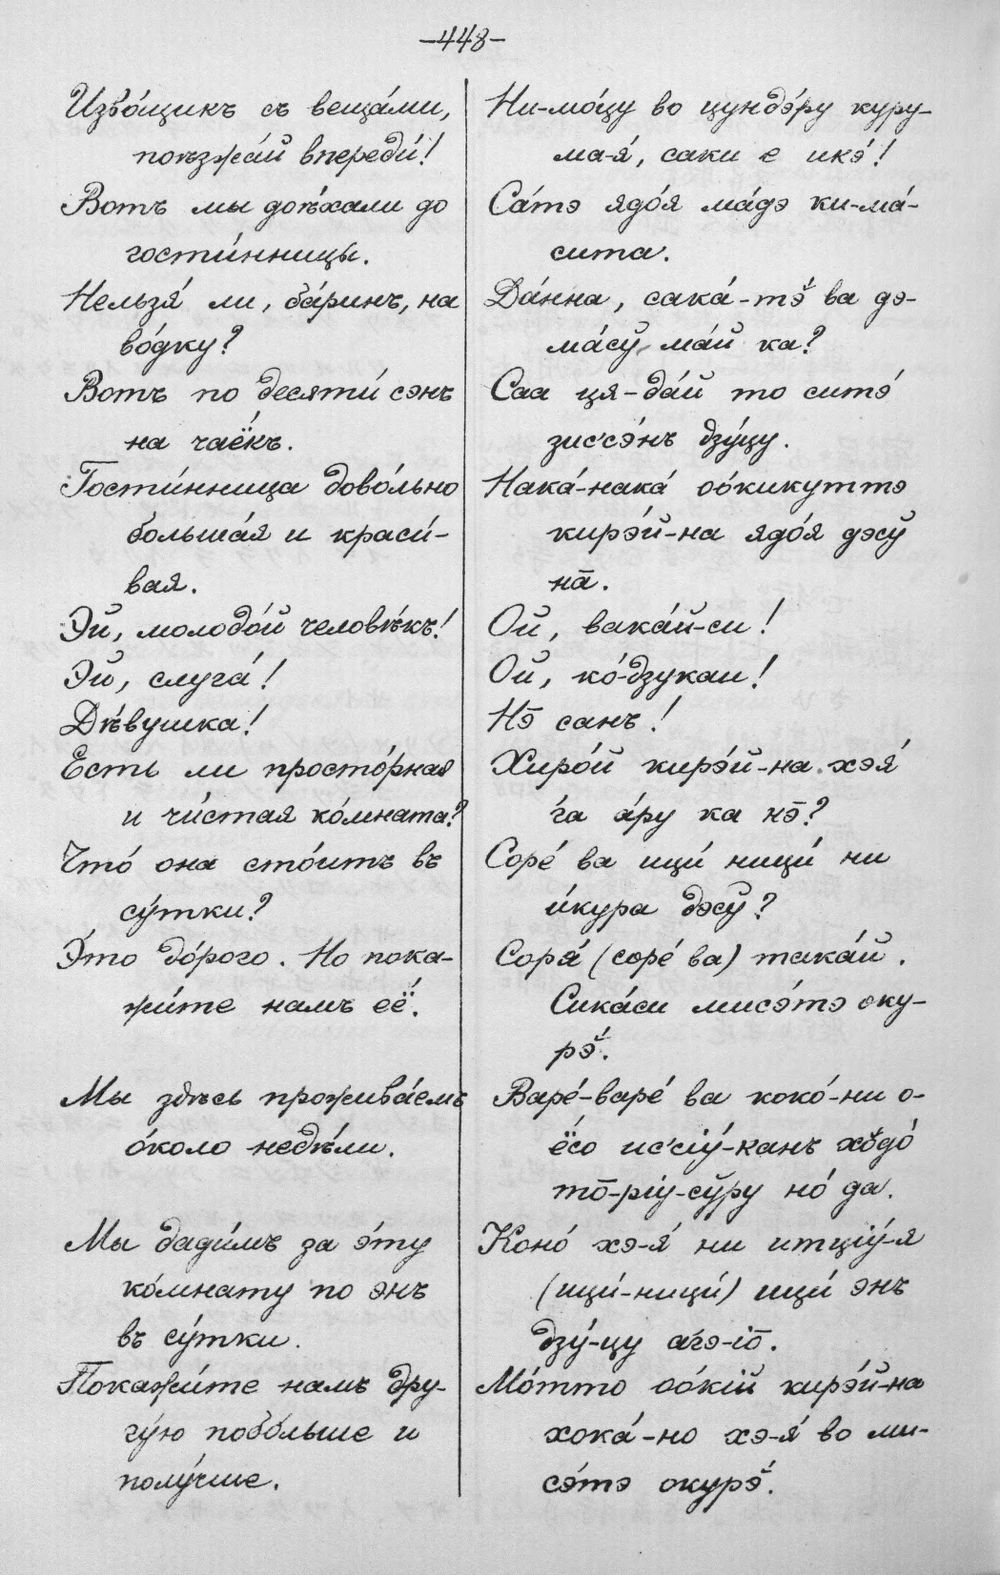 -448-
Изво́щикъ съ веща́ми,
поѣзжа́й впереди́!
Вотъ мы доѣ́хали до
гости́нницы.
Нельзя́ ли, ба́ринъ, на
во́дку?
Вотъ по десяти́ сэнъ
на чаёкъ.
Гости́нница дово́льно
больша́я и краси́-
вая.
Эй, молодо́й человѣ́къ!
Эй, слуга́!
Дѣ́вушка!
Есть ли просто́рная
и чи́стая ко́мната?
Что́ она сто́итъ въ
су́тки?
Э́то до́рого. Но пока-
жи́те намъ её.
Мы здѣсь прожива́емъ
о́коло недѣ́ли.
Мы дади́мъ за э́ту
ко́мнату по энъ
въ су́тки.
Покажи́те намъ дру-
гу́ю побо́льше и
полу́чше.
Ни-мо́цу во цундэ́ру куру-
ма-я́, саки е икэ́!
Са́тэ ядо́я ма́дэ ки-ма́-
сита.
Да́нна, сака́-тэ̆ ва дэ-
ма́сў ма́й ка?
Саа ця-да́й то ситэ́
зис'сэ́нъ дзу́цу.
Нака́-нака́ оо́кикуттэ
кирэ́й-на ядо́я дэсў
на̄.
Ой, вака́й-си!
Ой, ко́-дзукаи!
Нэ̄ санъ!
Хиро́й кирэ́й-на хэя́
га а́ру ка нэ̄?
Соре́ ва ици́ ници́ ни
и́кура дэсў?
Соря́ (соре́ ва) така́й.
Сика́си мисэ́тэ оку-
рэ̆́.
Варе́-варе́ ва коко́-ни о-
ё́со ис'сіу́-канъ хо̆до́
то̄-ріу-сўру но́ да.
Коно́ хэ-я́ ни итціу́-я
(ици́-ници́) ици́ энъ
дзу́-цу агэ-іо̄.
Мо́тто оо́кій кирэ́й-на
хока́-но хэ-я́ во ми-
сэ́тэ окурэ̆́.